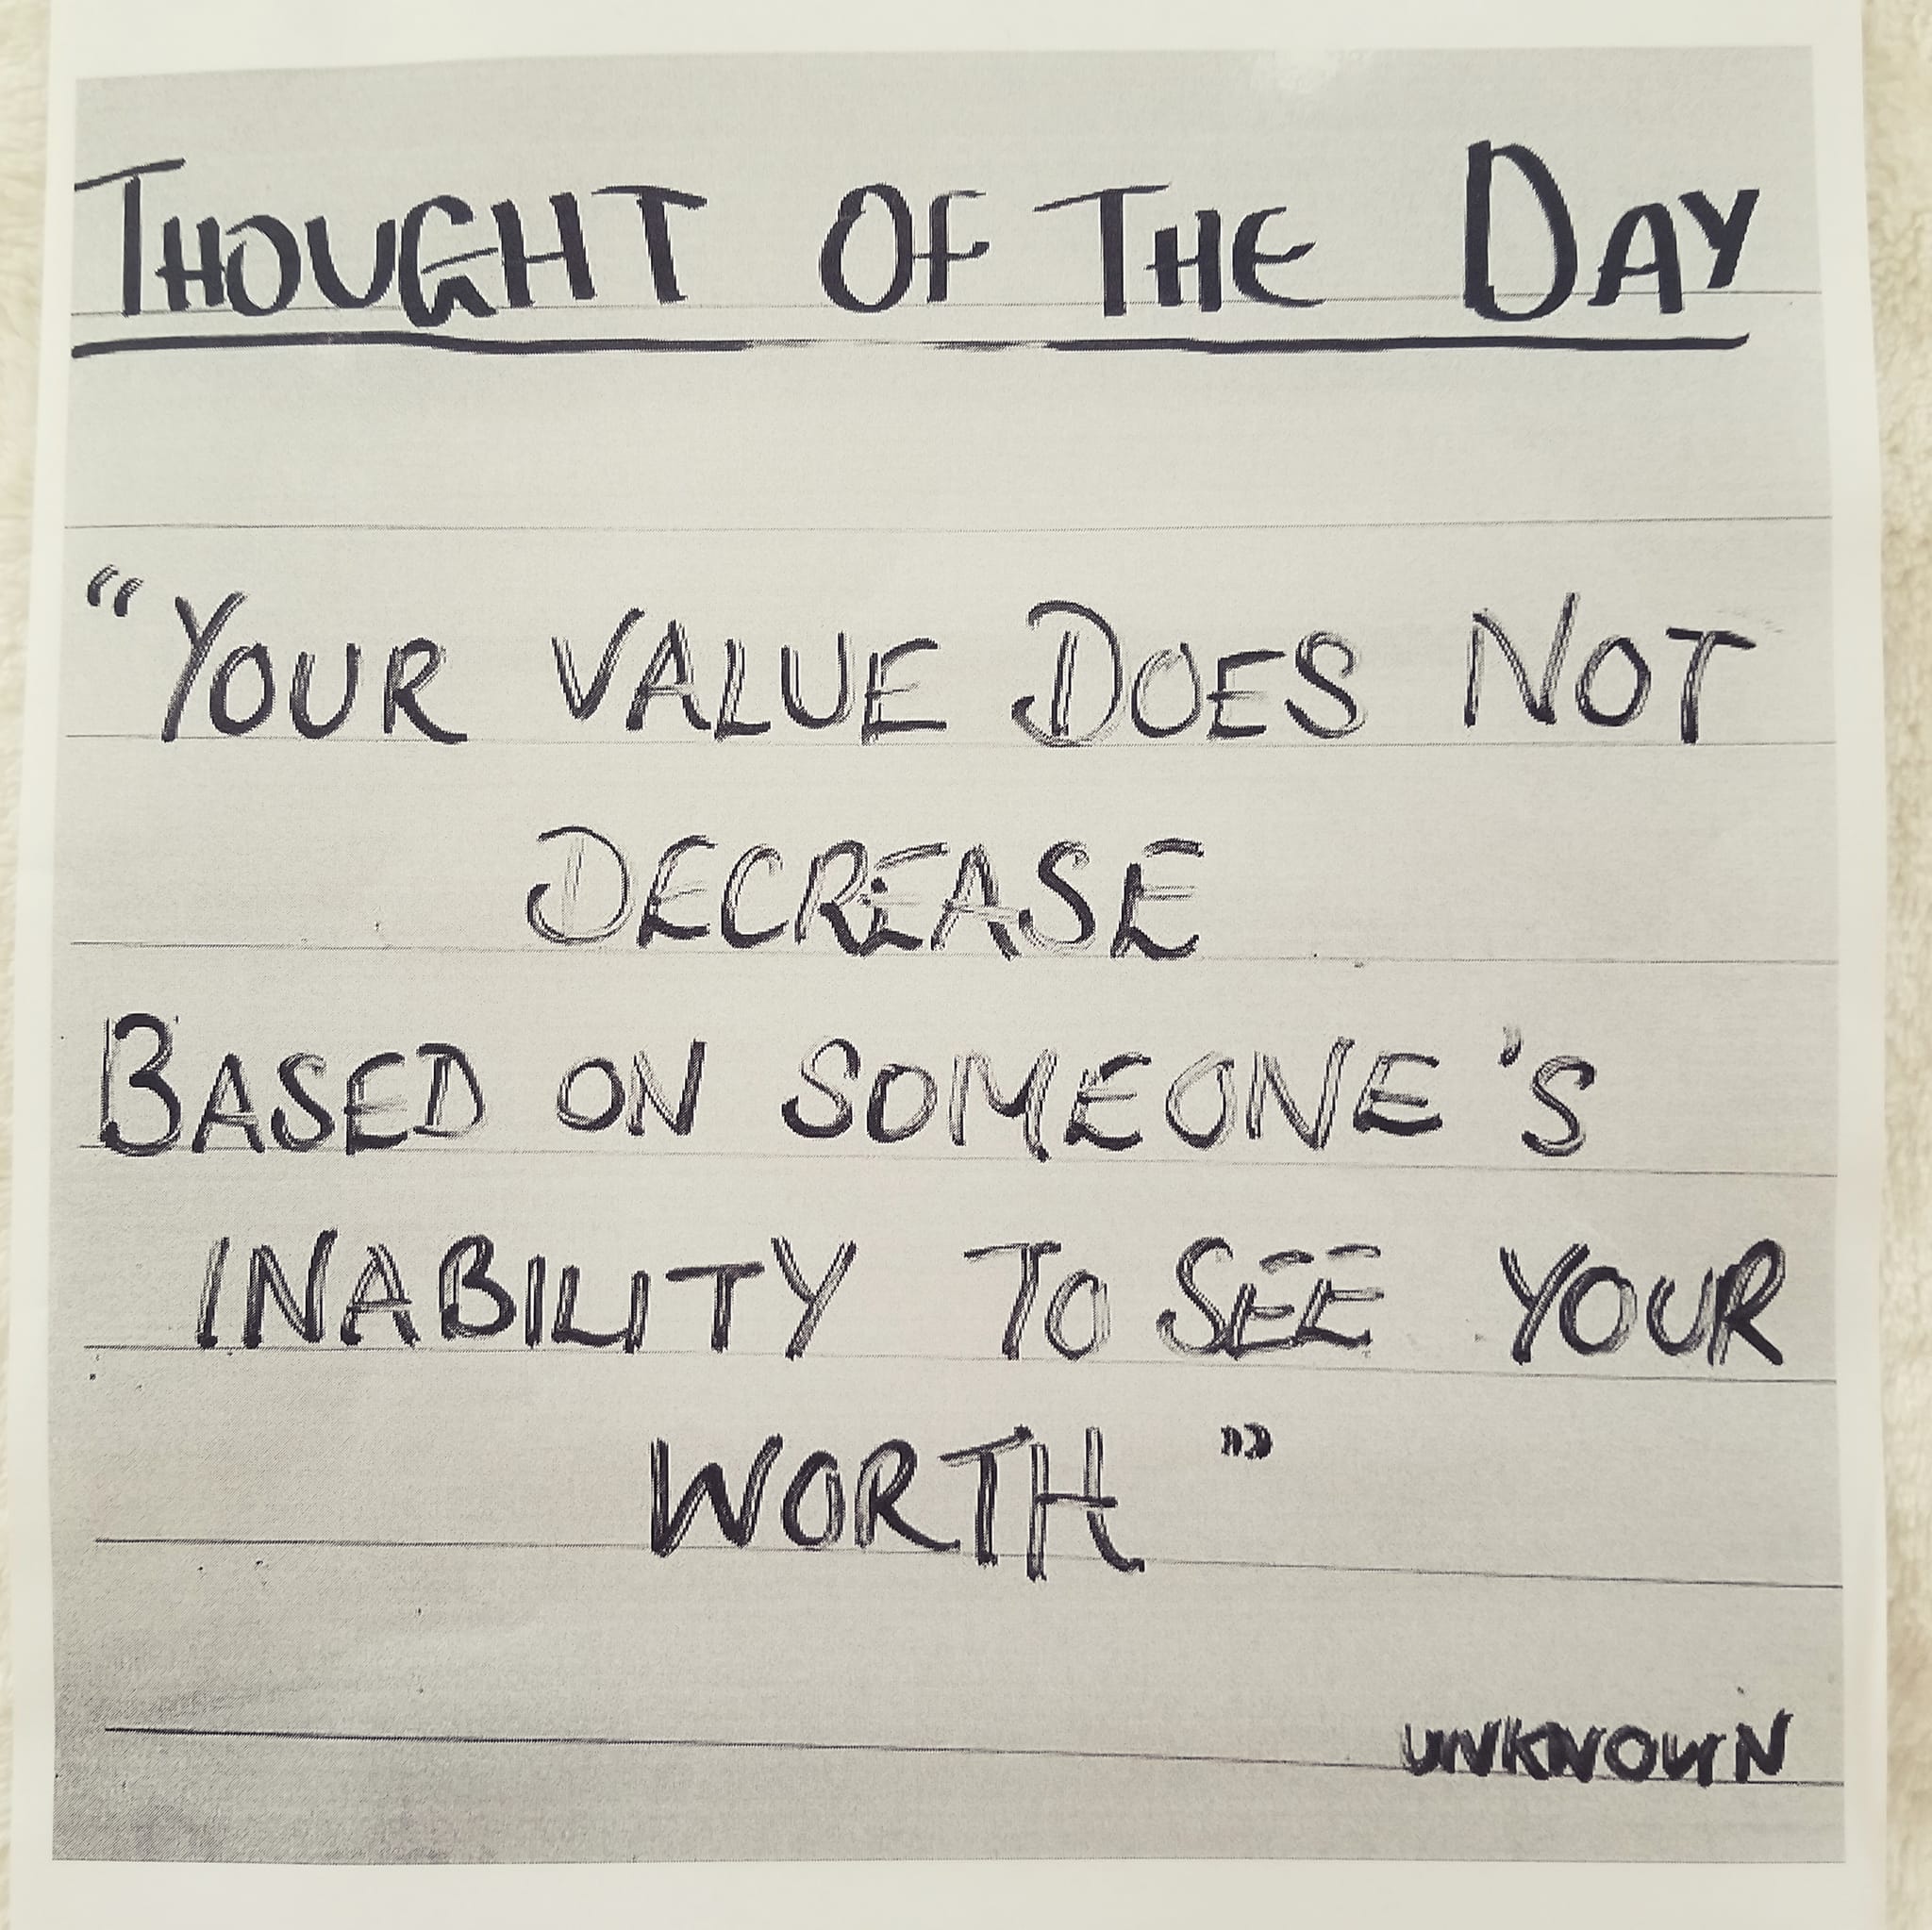 THOUGHT OF THE DAY
“YOUR VALUE DOES NOT
DECREASE
BASED ON SOMEONE'S
INABILITY TO SEE YOUR
WORTH”
UNKNOWN